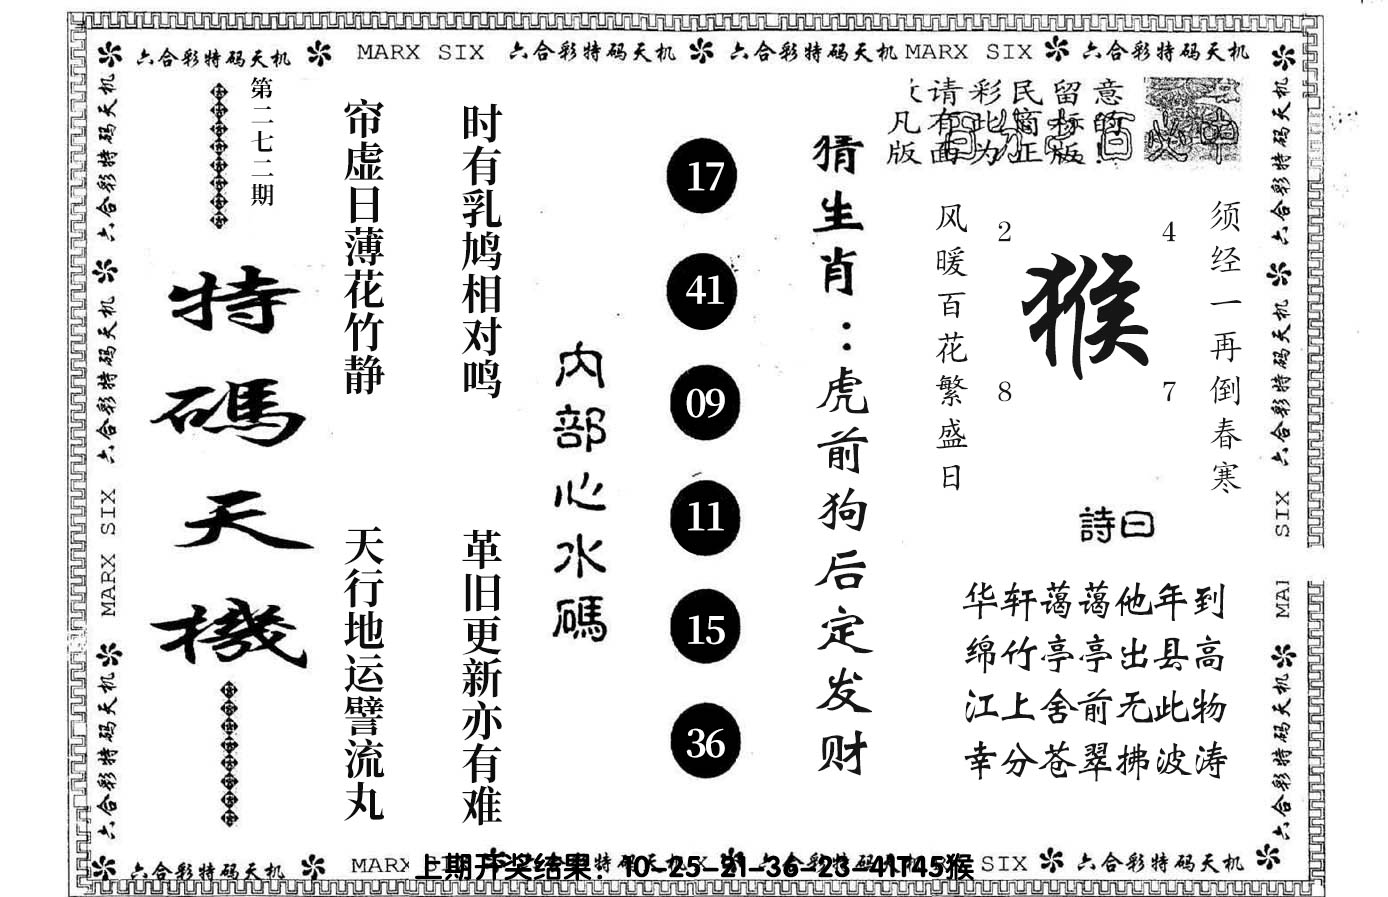 六合彩特码天机 MARX SIX 六合彩特码天机 六合彩特码天机 MARX SIX 六合彩特码天机
六合彩特码天机
六合彩特码天机
MARX SIX
六合彩特码天机
第二七二期
特碼天機
帘虚日薄花竹静
天行地运譬流丸
时有乳鸠相对鸣
革旧更新亦有难
内部心水碼
17
41
09
11
15
36
猜生肖：虎前狗后定发财
请彩民留意
凡有此商标的
版面为正版!
风暖百花繁盛日
2
4
猴
8
7
须经一再倒春寒
詩曰
华轩蔼蔼他年到
绵竹亭亭出县高
江上舍前无此物
幸分苍翠拂波涛
六合彩特码天机
六合彩特码天机
SIX
六合彩特码天机
六合彩特码天机 MARX
上期开奖结果：10-25-21-36-23-41T45猴
SIX 六合彩特码天机